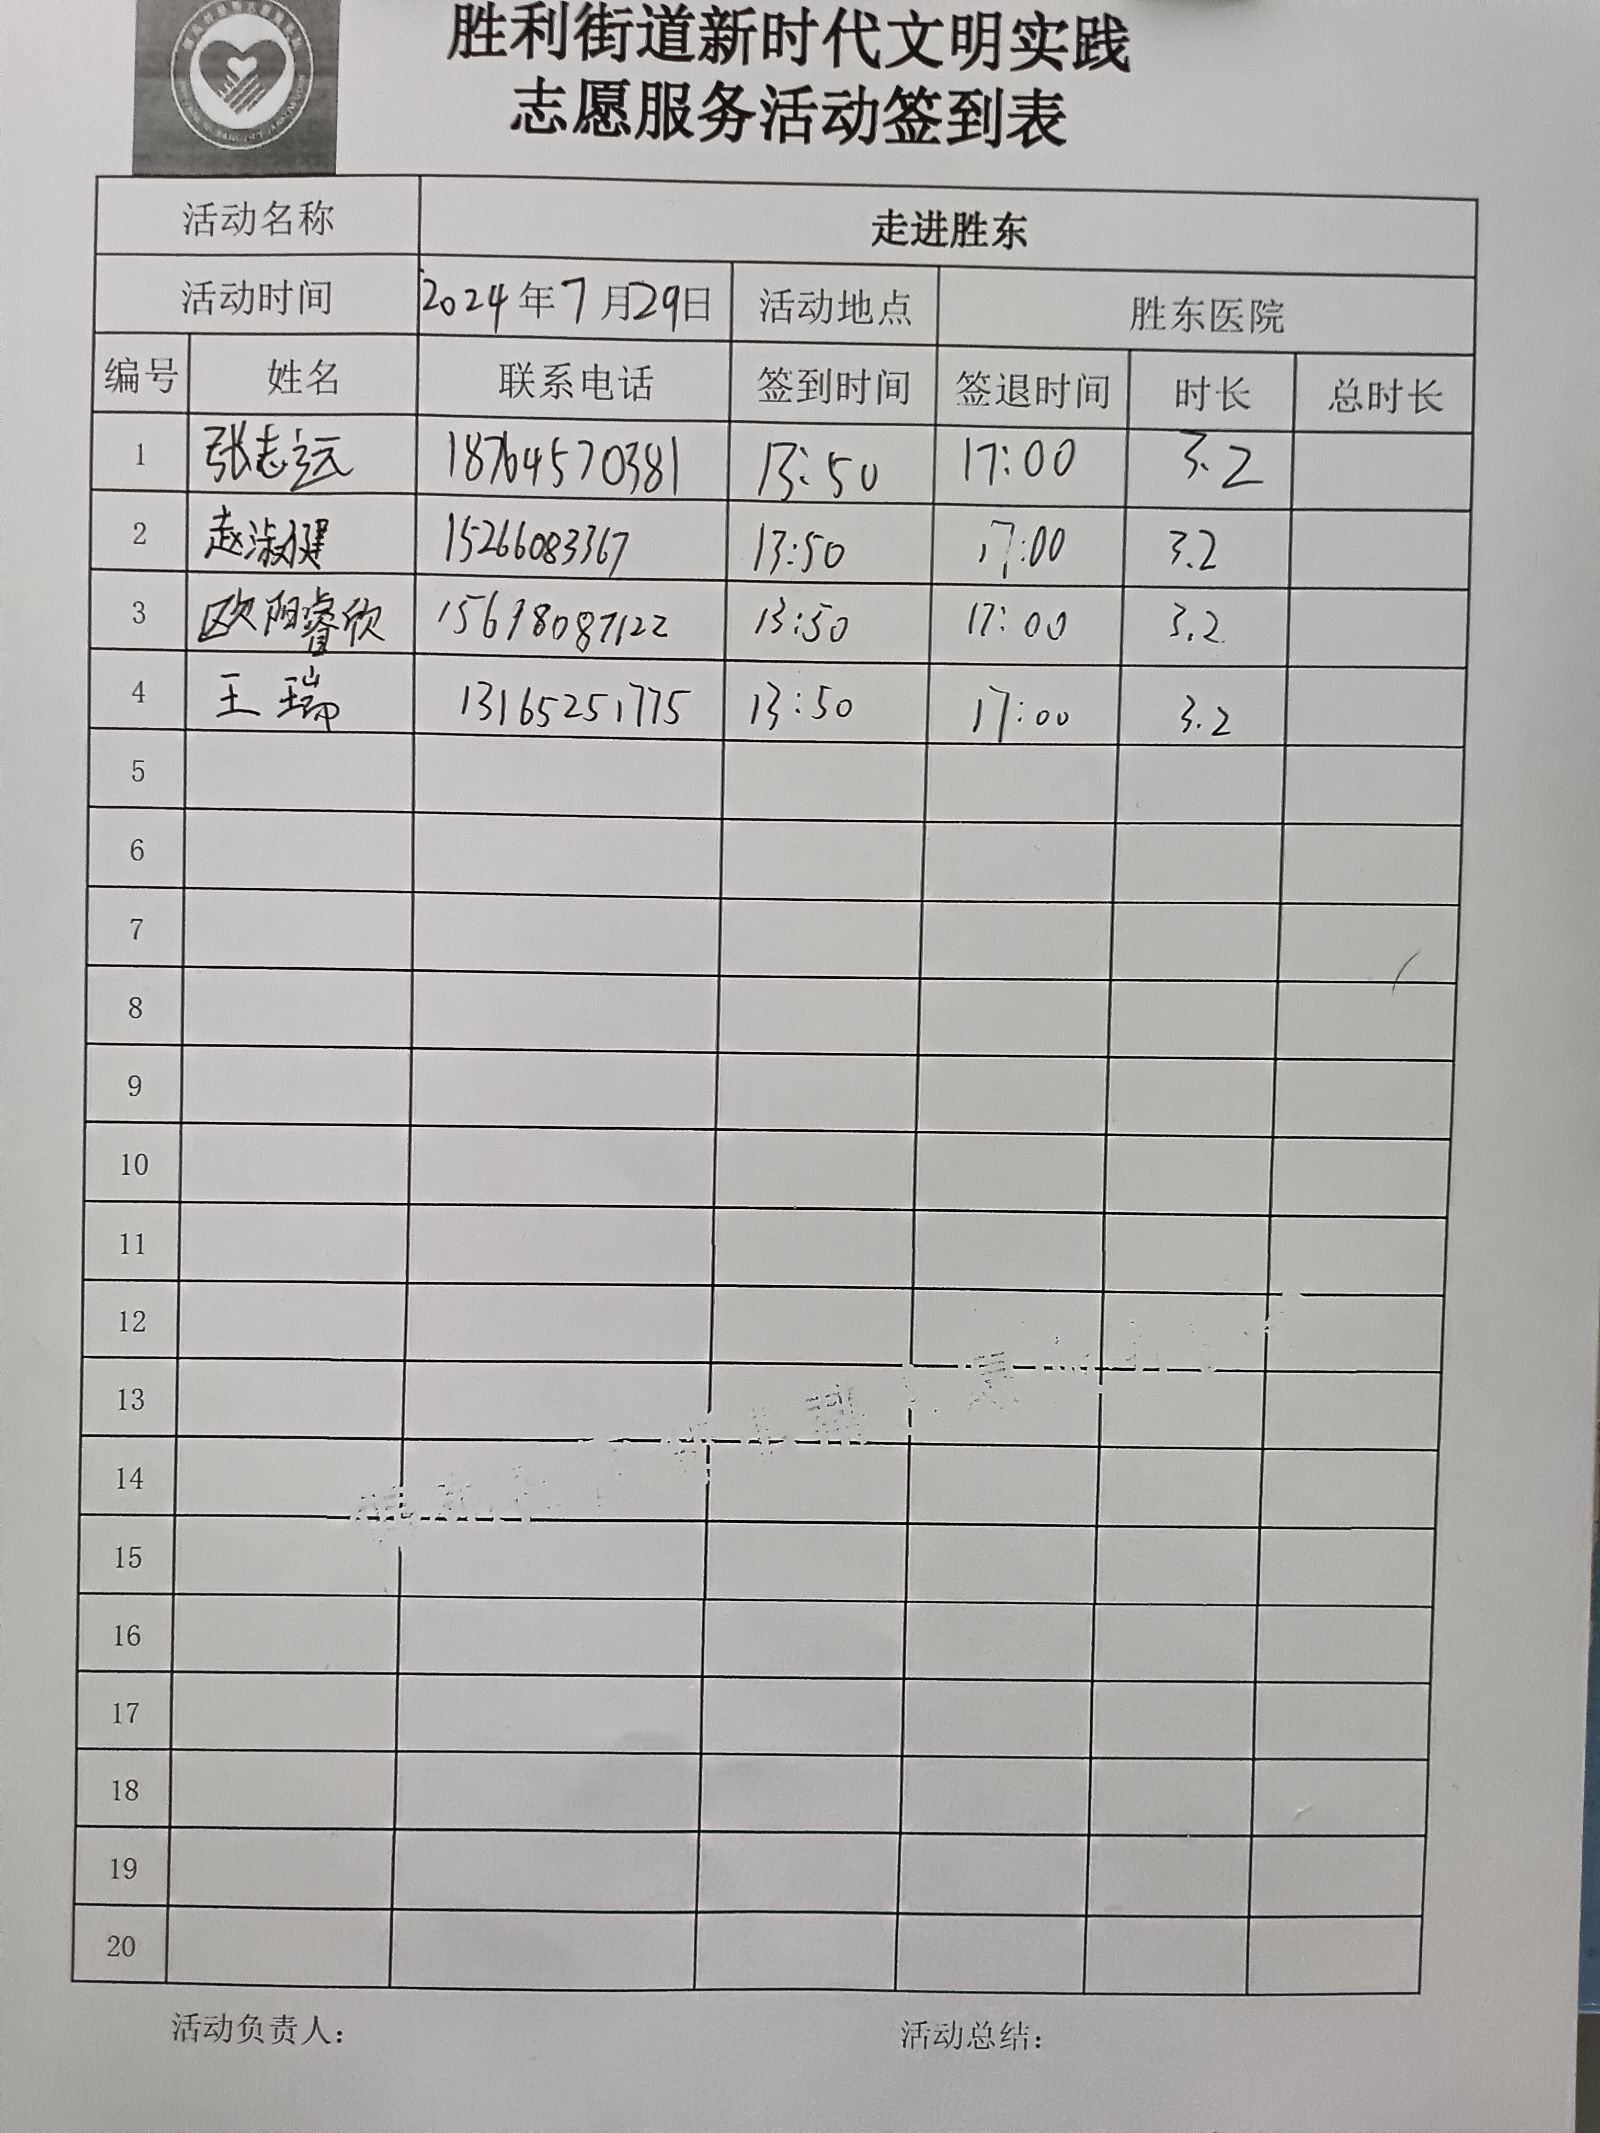 胜利街道新时代文明实践
志愿服务活动签到表
活动名称 走进胜东
活动时间 2024年7月29日 活动地点 胜东医院
编号 姓名 联系电话 签到时间 签退时间 时长 总时长
1 张志远 18764570381 13:50 17:00 3.2
2 赵淑健 15266083367 13:50 17:00 3.2
3 欧阳睿欣 15698087122 13:50 17:00 3.2
4 王瑞 13165251775 13:50 17:00 3.2
5
6
7
8
9
10
11
12
13
14
15
16
17
18
19
20
活动负责人： 活动总结：